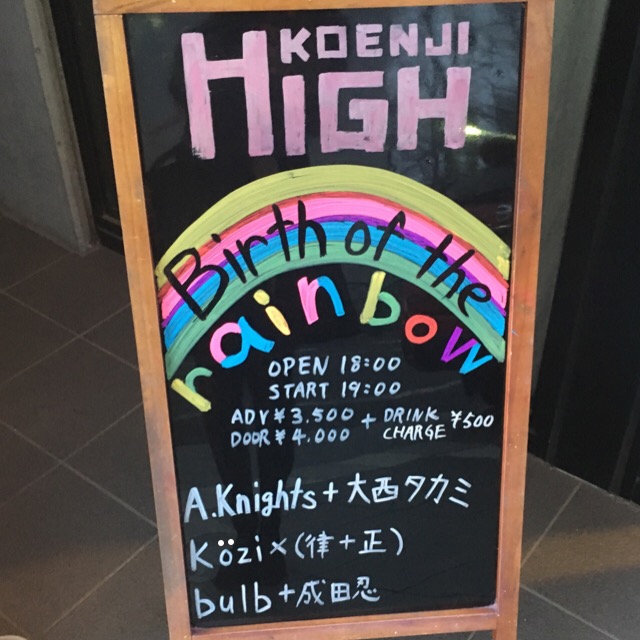 KOENJI
HIGH
Birth of the
rainbow
OPEN 18:00
START 19:00
ADV ¥3,500 + DRINK CHARGE ¥500
DOOR ¥4,000
A.Knights+大西タカミ
Közi×(律+正)
bulb+成田忍